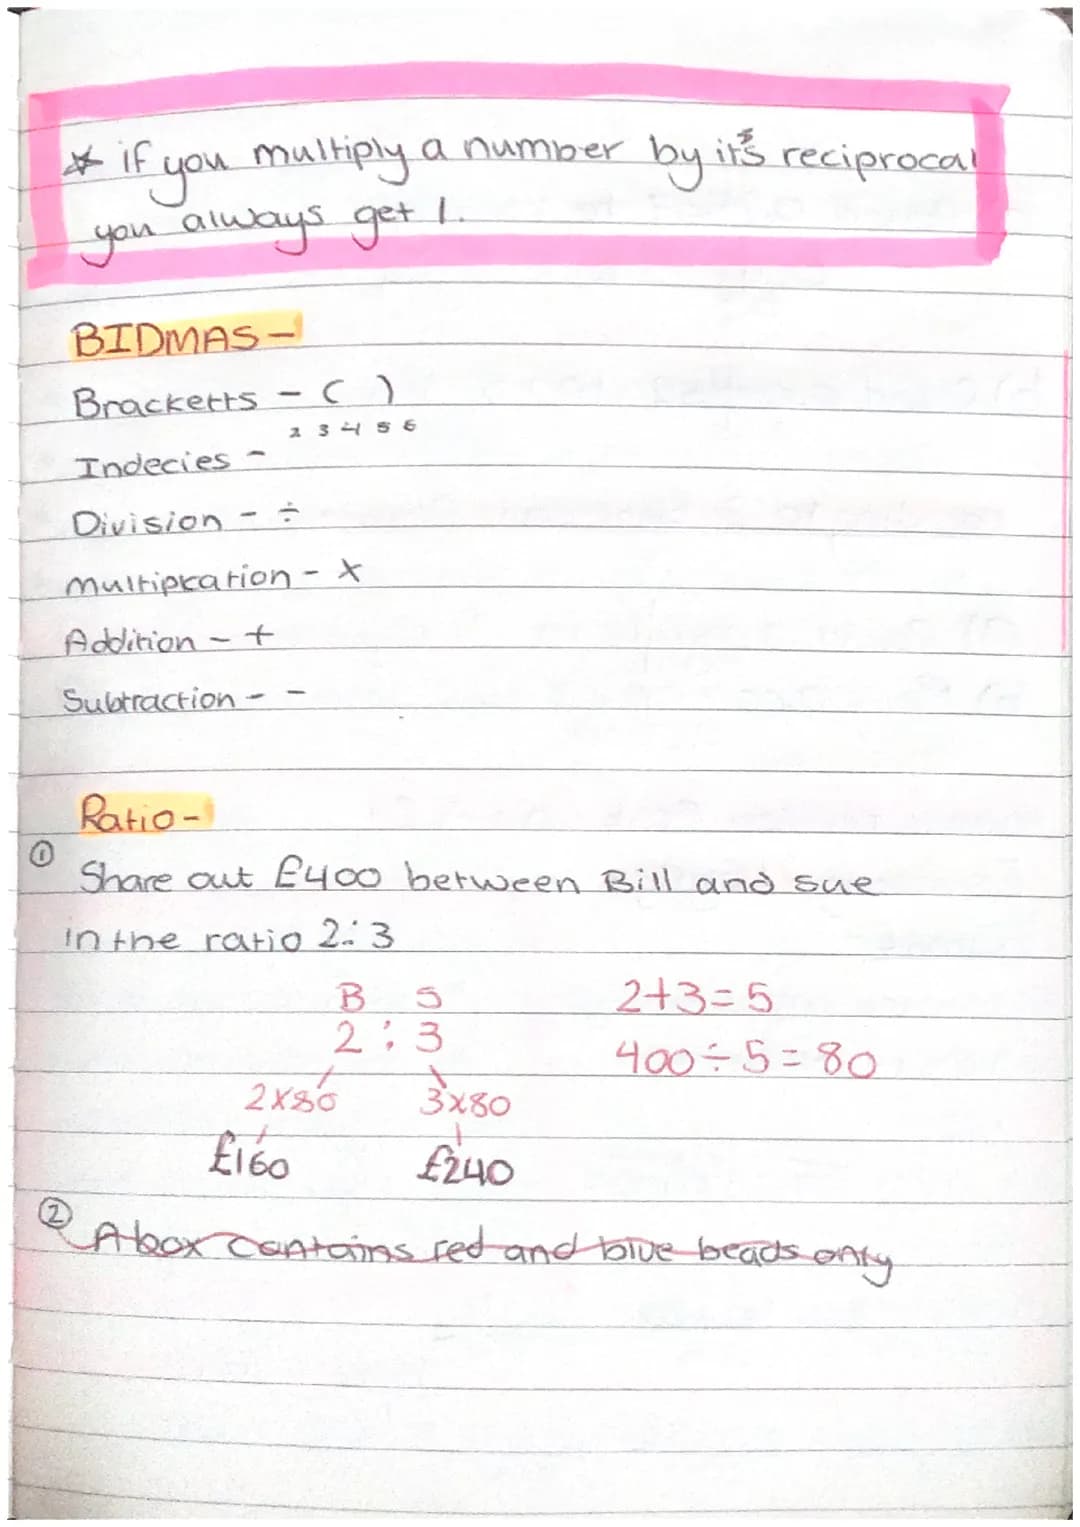 * if you multiply a number by it's reciprocal
you always get 1.
BIDMAS -
Bracketts - ( )
2 3 4 5 6
Indecies -
Division - ÷
Multiplcation - ×
Addition - +
Subtraction - -
Ratio -
① Share out £400 between Bill and sue
in the ratio 2:3
B S 2+3=5
2 : 3 400÷5=80
2×80 3×80
£160 £240
② A box contains red and blue beads only